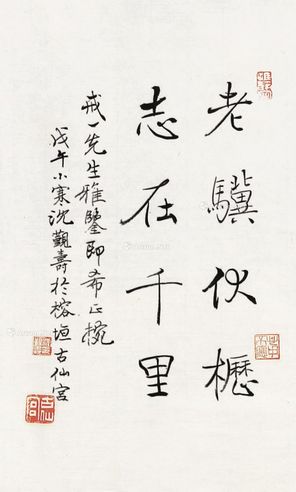 老驥伏櫪
志在千里
戒一先生雅鑒即希正椀
戊午小寒沈觀壽於榕垣古仙宮